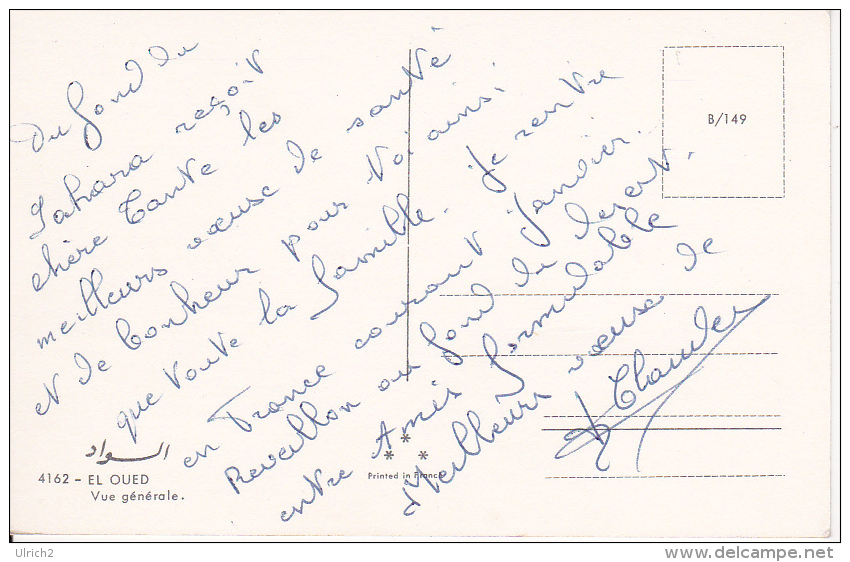 Du fond du
Sahara reçoit
chère Tante les
meilleurs vœuse de santé
et de bonheur pour Toi ainsi
que toute la famille. Je rentre
en France courant Janvier.
Reveillon au fond du desert
entre Amis formidable
Meilleurs vœuse de
B/149
السواد
4162 - EL OUED
Vue générale.
Printed in France
Ulrich2
www.delcampe.net